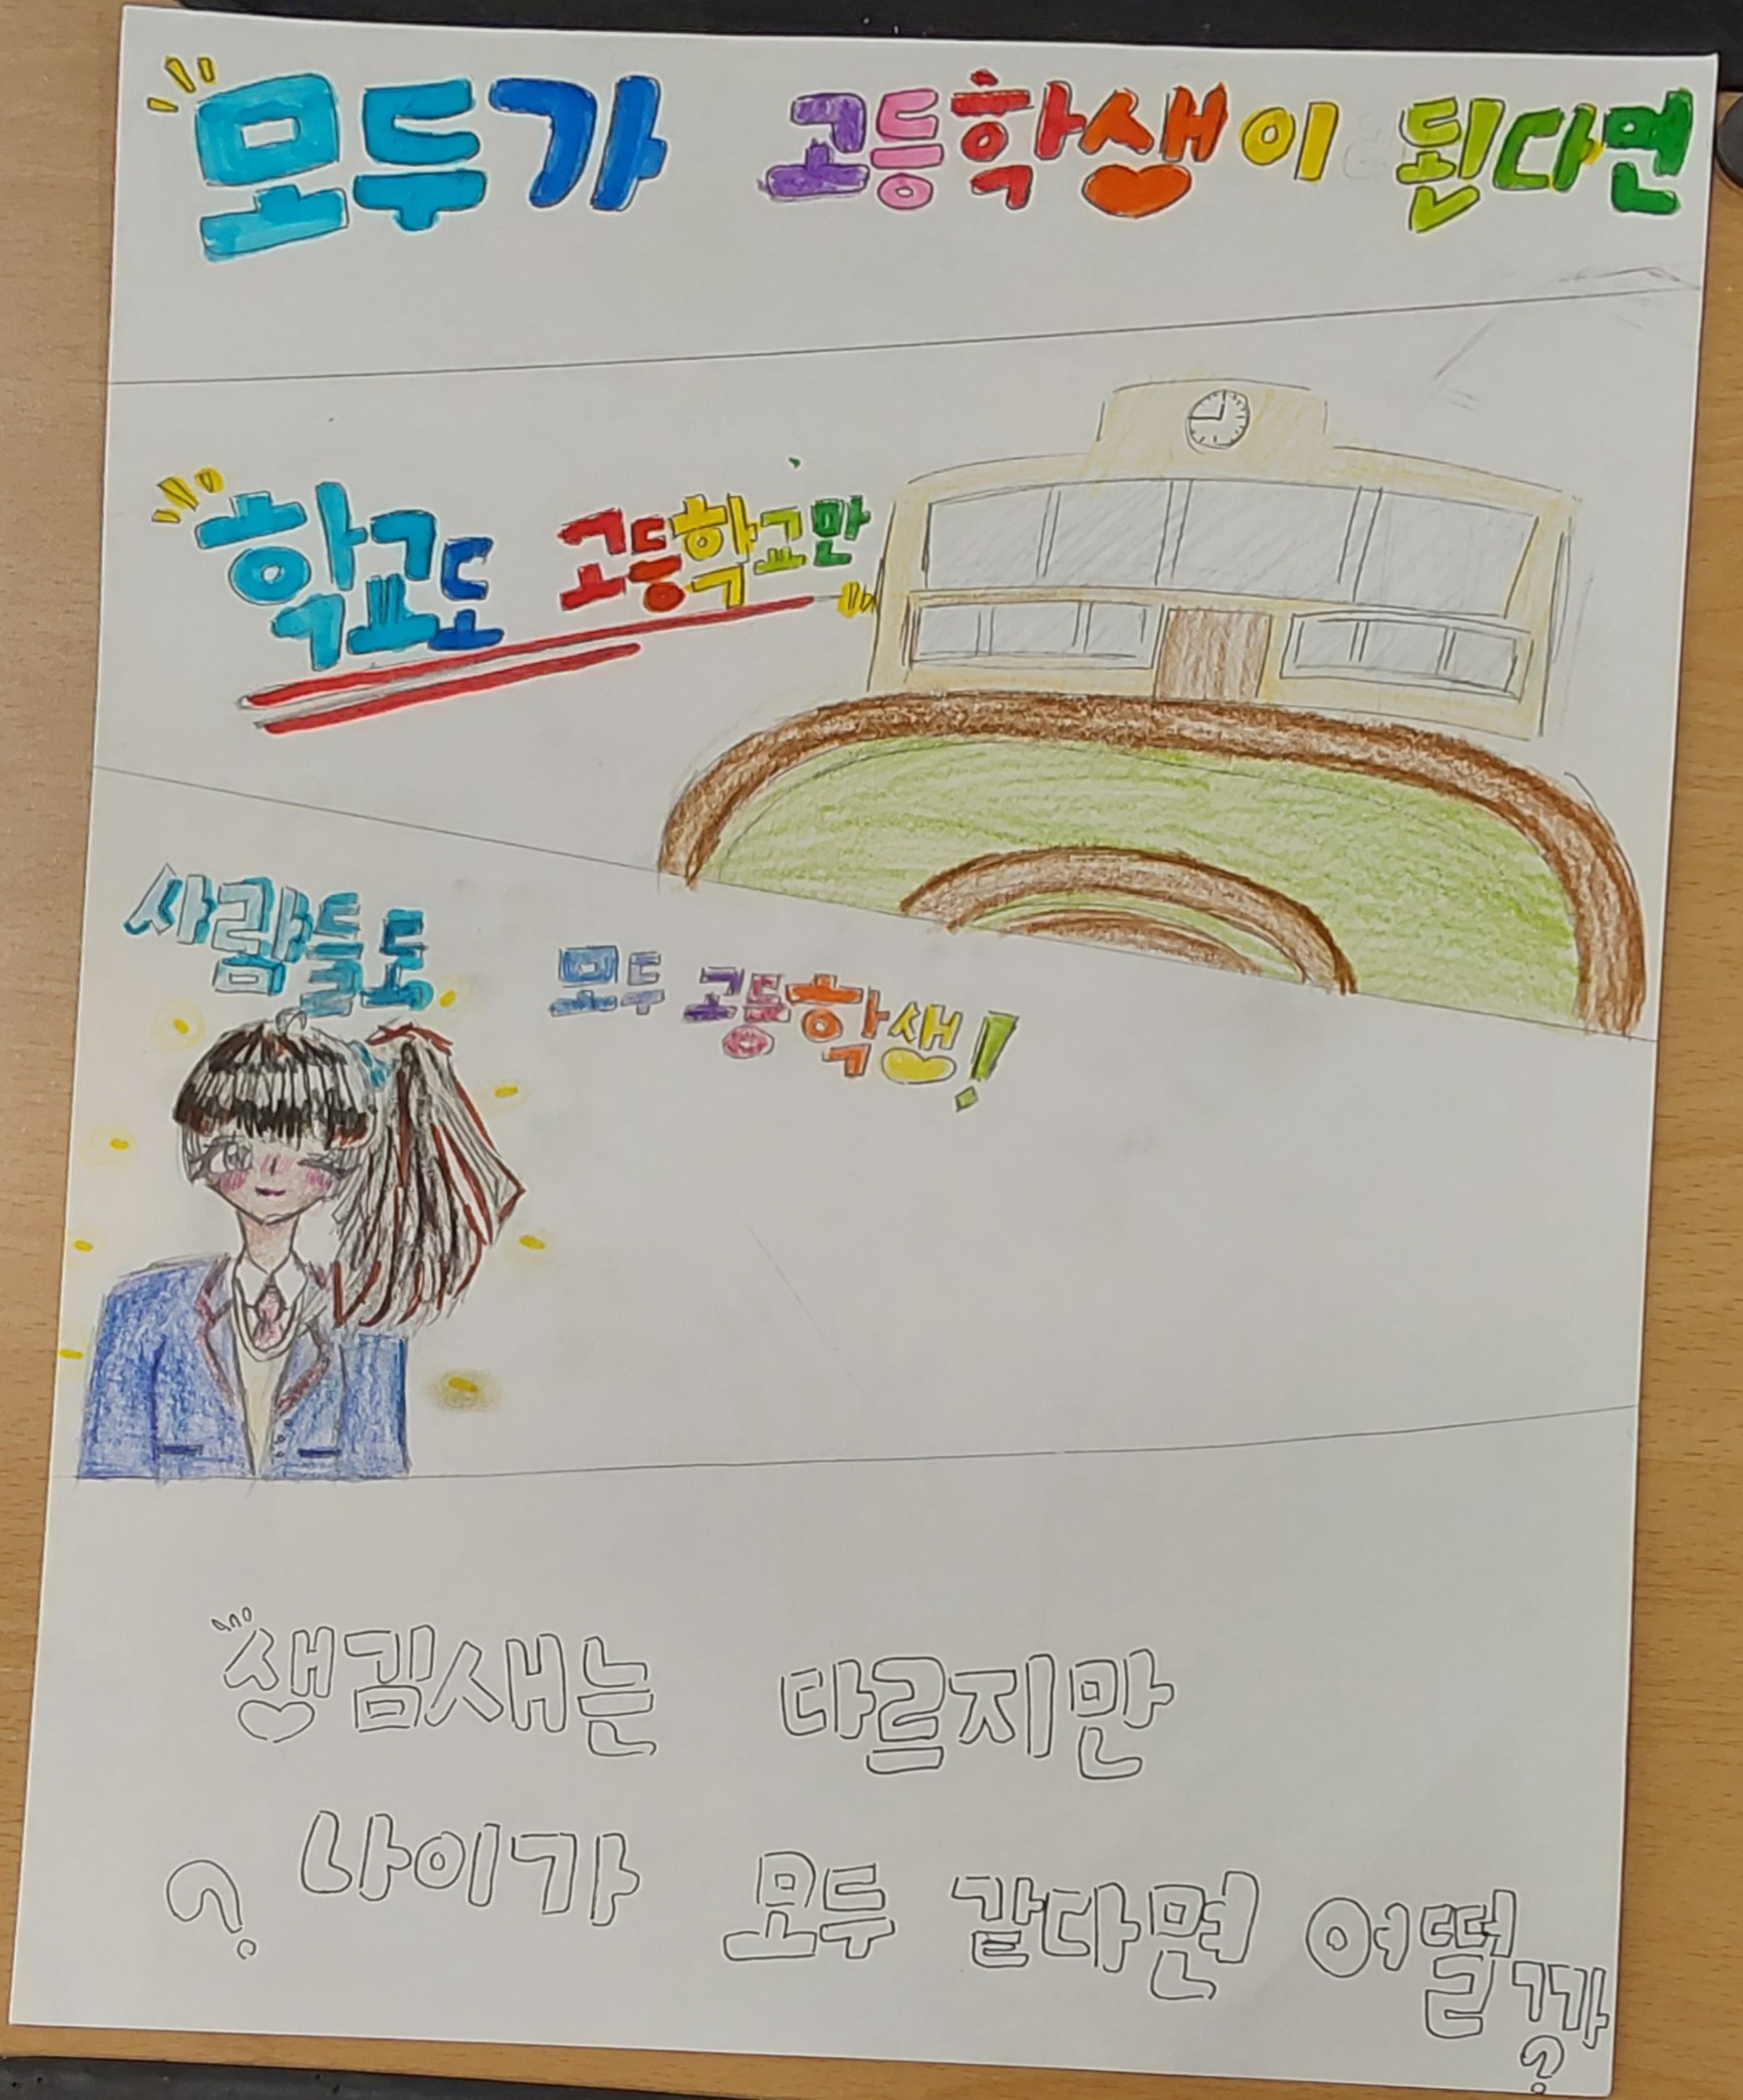 모두가 고등학생이 된다면
학교도 고등학교만
사람들도 모두 고등학생!
생김새는 다르지만
? 나이가 모두 같다면 어떨까?